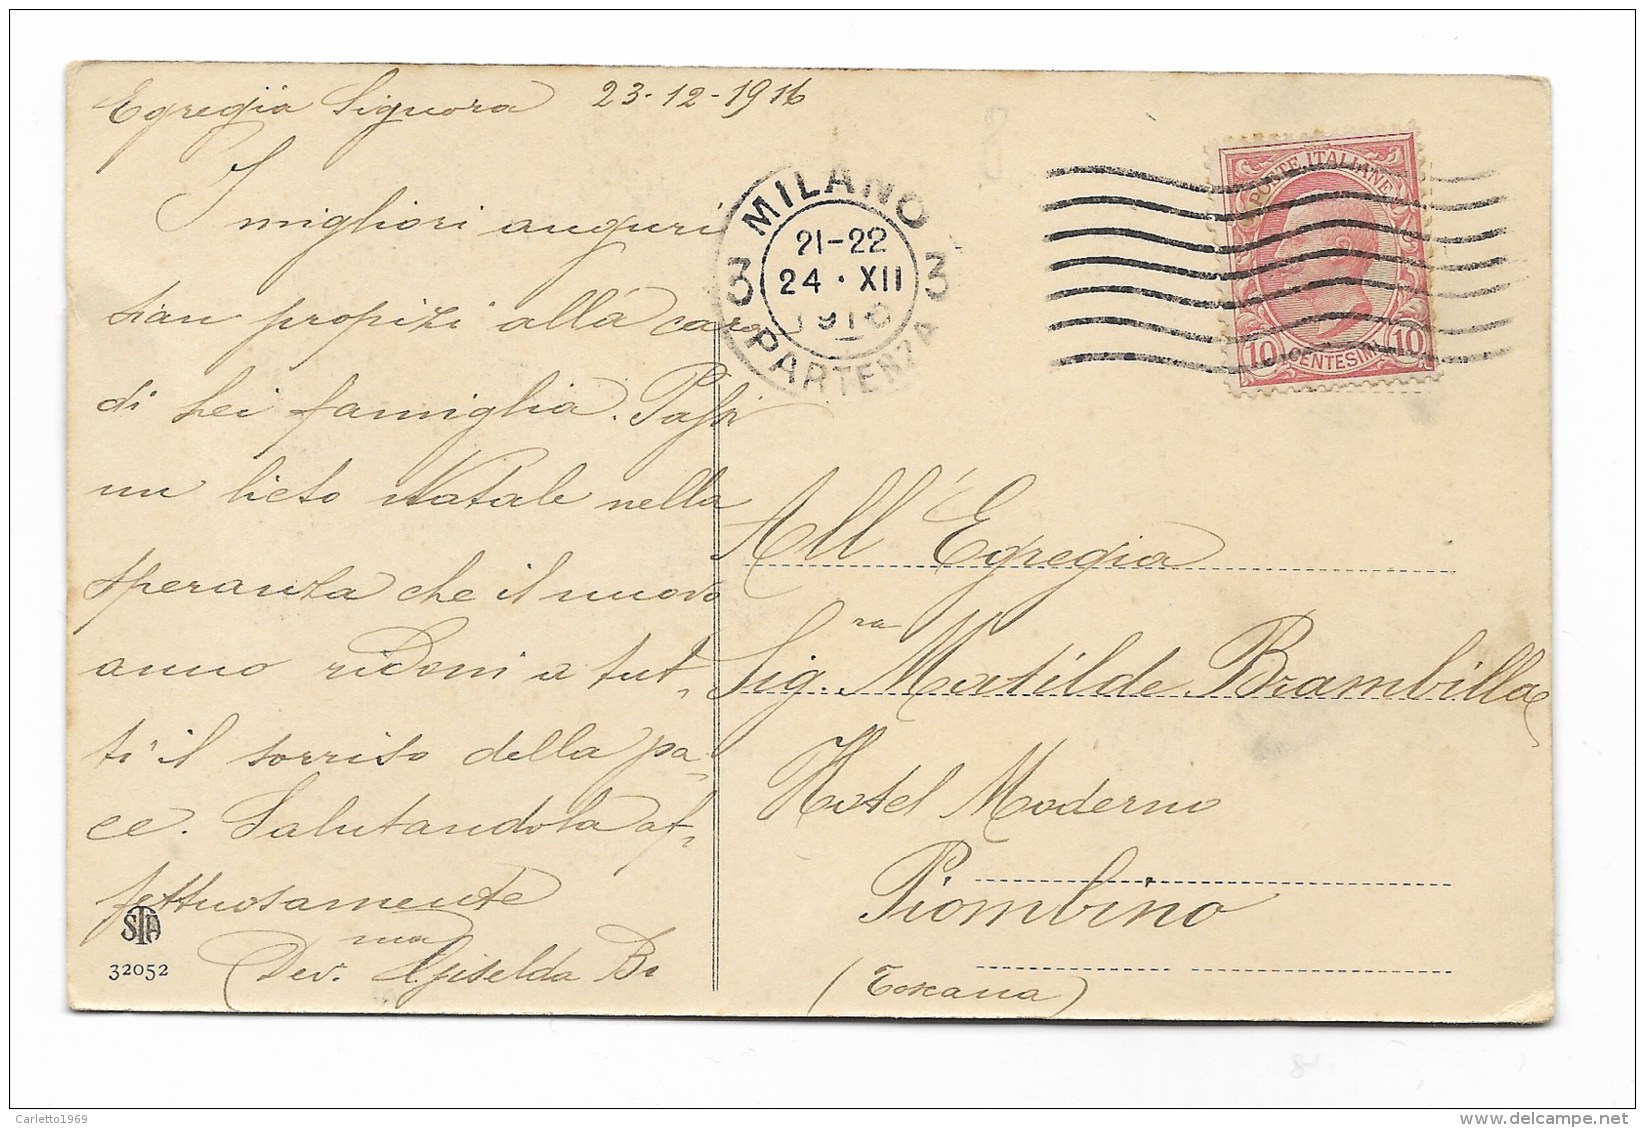 Egregia Signora 23-12-1916
I migliori auguri
sian propizi alla cara
di Lei famiglia. Passi
un lieto Natale nella
speranza che il nuovo
anno ridoni a tut-
ti il sorriso della pa-
ce. Salutandola af-
fettuosamente
Dev.ma Giselda B.
STA
32052
MILANO
3 21-22 3
24·XII
1916
PARTENZA
POSTE ITALIANE
10 CENTESIMI 10
All'Egregia
Sig.ra Matilde Brambilla
Hotel Moderno
Piombino
(Toscana)
Carletto1969
delcampe.net